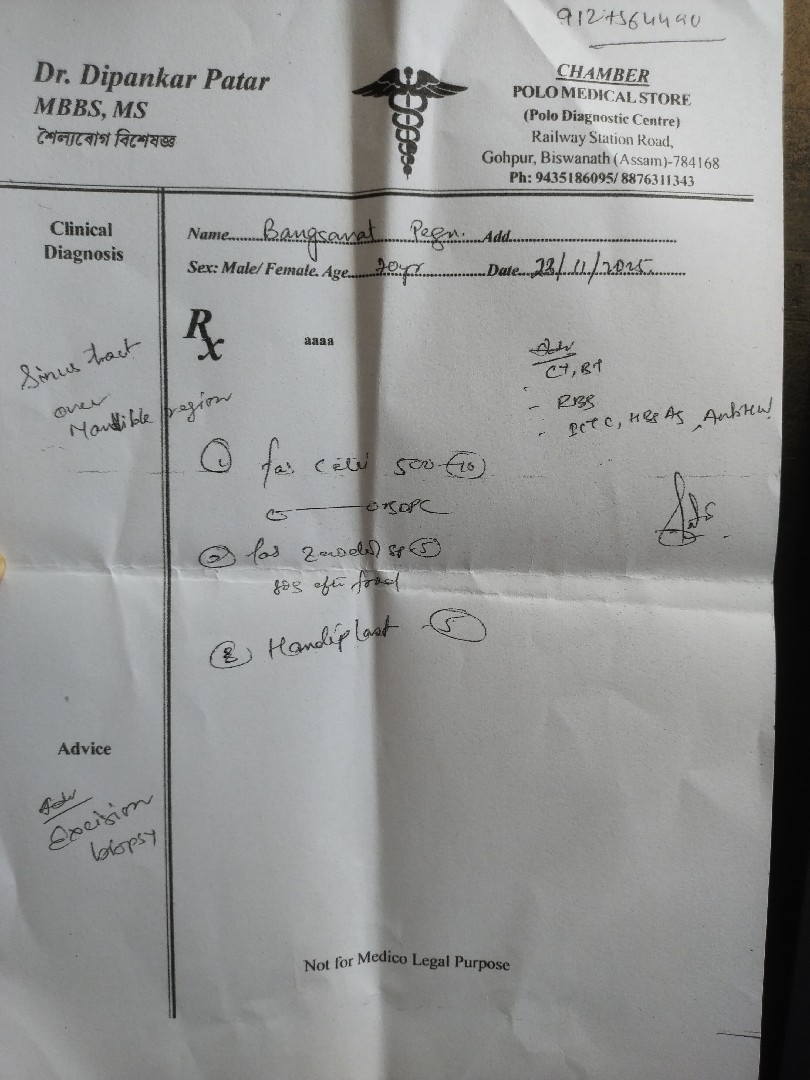 Dr. Dipankar Patar
MBBS, MS
CHAMBER
POLO MEDICAL STORE
(Polo Diagnostic Centre)
Railway Station Road,
Gohpur, Biswanath (Assam)-784168
Ph: 9435186095/ 8876311343
Clinical
Diagnosis
Name Bangsanat Pegn. Add.
Sex: Male/ Female. Age 70yr Date 28/11/2025
Rx
aaaa
Sinus tract
over
Mandible region
Adv
CT, BT
- RBS
- ICTC, HBsAg, AntiHCV
① 500 (10)
②
sos after food
③ Handiplast (5)
Advice
Adv
Excision
biopsy
Not for Medico Legal Purpose